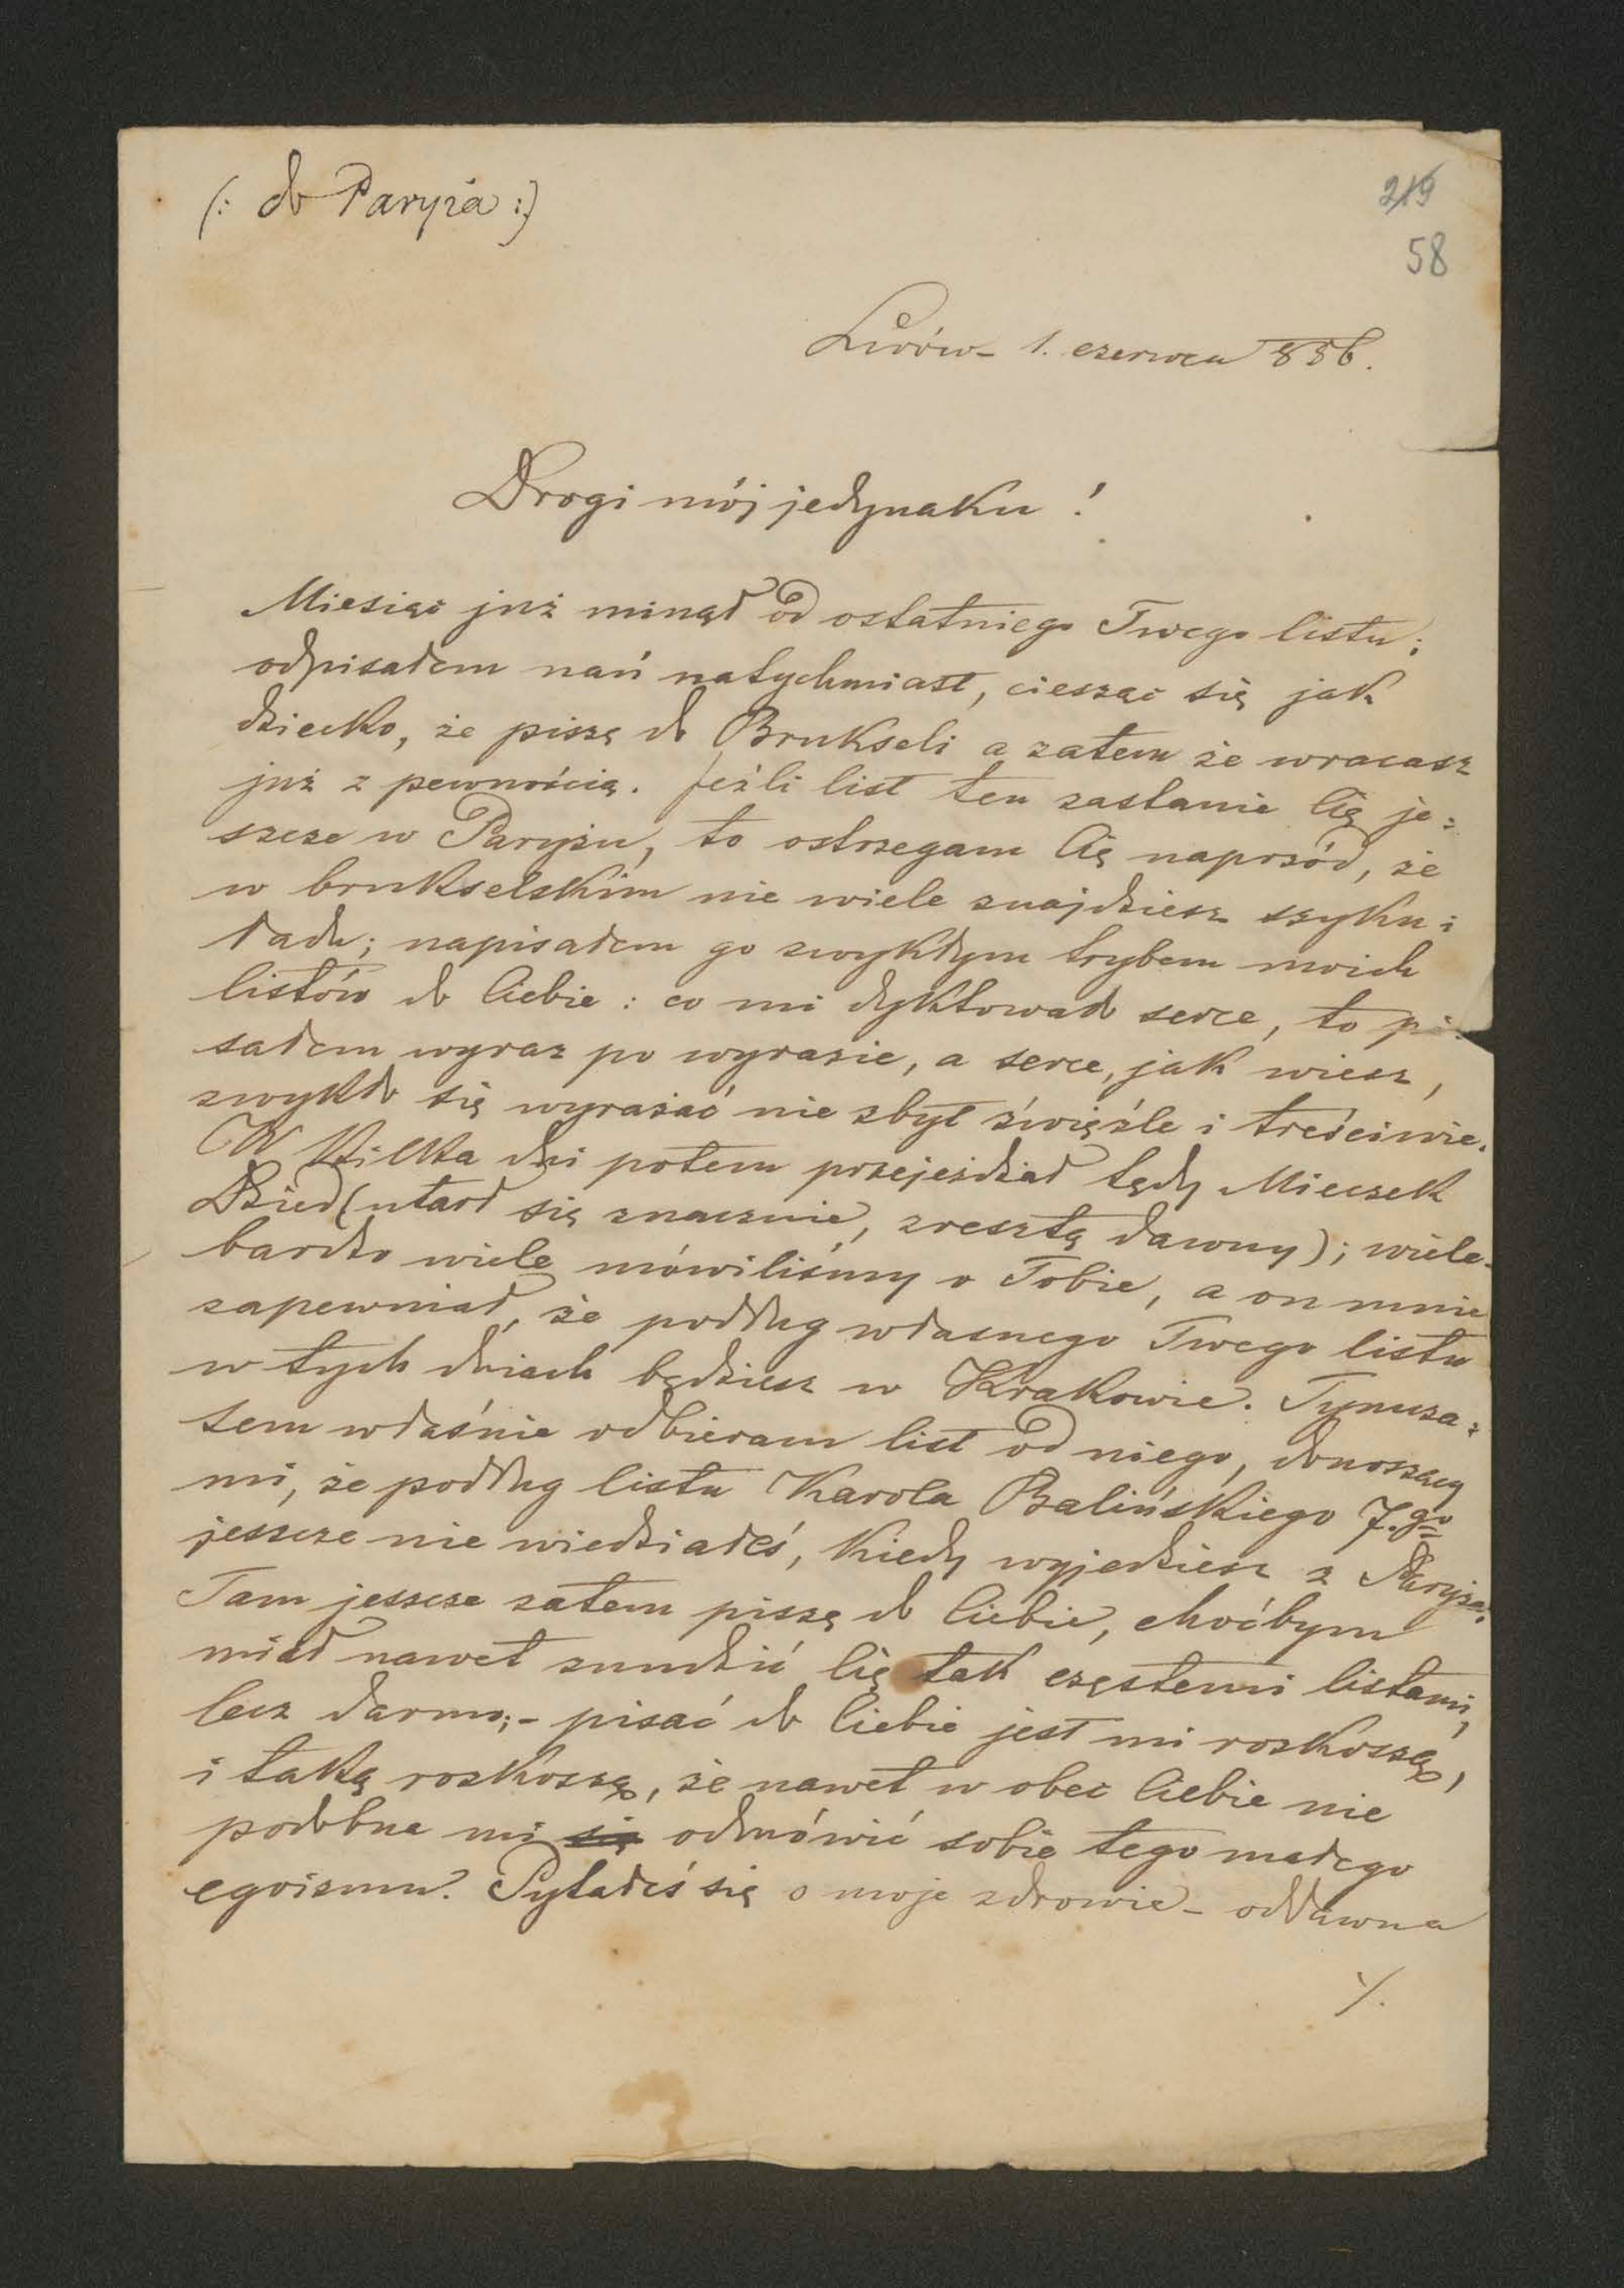 (: do Paryża :)
219
58
Lwów - 1. czerwca 856.
Drogi mój jedynaku!
Miesiąc już minął od ostatniego Twego listu;
odpisałem nań natychmiast, ciesząc się jak
dziecko, że piszę do Brukseli a zatem że wracasz
już z pewnością. Jeźli list ten zastanie Cię je=
szcze w Paryżu, to ostrzegam Cię naprzód, że
w brukselskim nie wiele znajdziesz szyku i
ładu; napisałem go zwykłym trybem moich
listów do Ciebie: co mi dyktowało serce, to pi=
sałem wyraz po wyrazie, a serce, jak wiesz,
zwykło się wyrażać nie zbyt źwięźle i treściwie.
W kilka dni potem przejeżdżał tędy Mieczek
Dzied (utarł się znacznie, zresztą dawny); wiele
bardzo wiele mówiliśmy o Tobie, a on mnie
zapewniał, że podług własnego Twego listu
w tych dniach będziesz w Krakowie. Tymcza=
sem właśnie odbieram list od niego, donoszący
mi, że podług listu Karola Balińskiego 7.go
jeszcze nie wiedziałeś, kiedy wyjedziesz z Paryża.
Tam jeszcze zatem piszę do Ciebie, choćbym
miał nawet znudzić Cię tak częstemi listami,
lecz darmo; - pisać do Ciebie jest mi rozkoszą,
i taką rozkoszą, że nawet w obec Ciebie nie
podobna mi się odmówić sobie tego małego
egoizmu. Pytałeś się o moje zdrowie - oddawna
./.